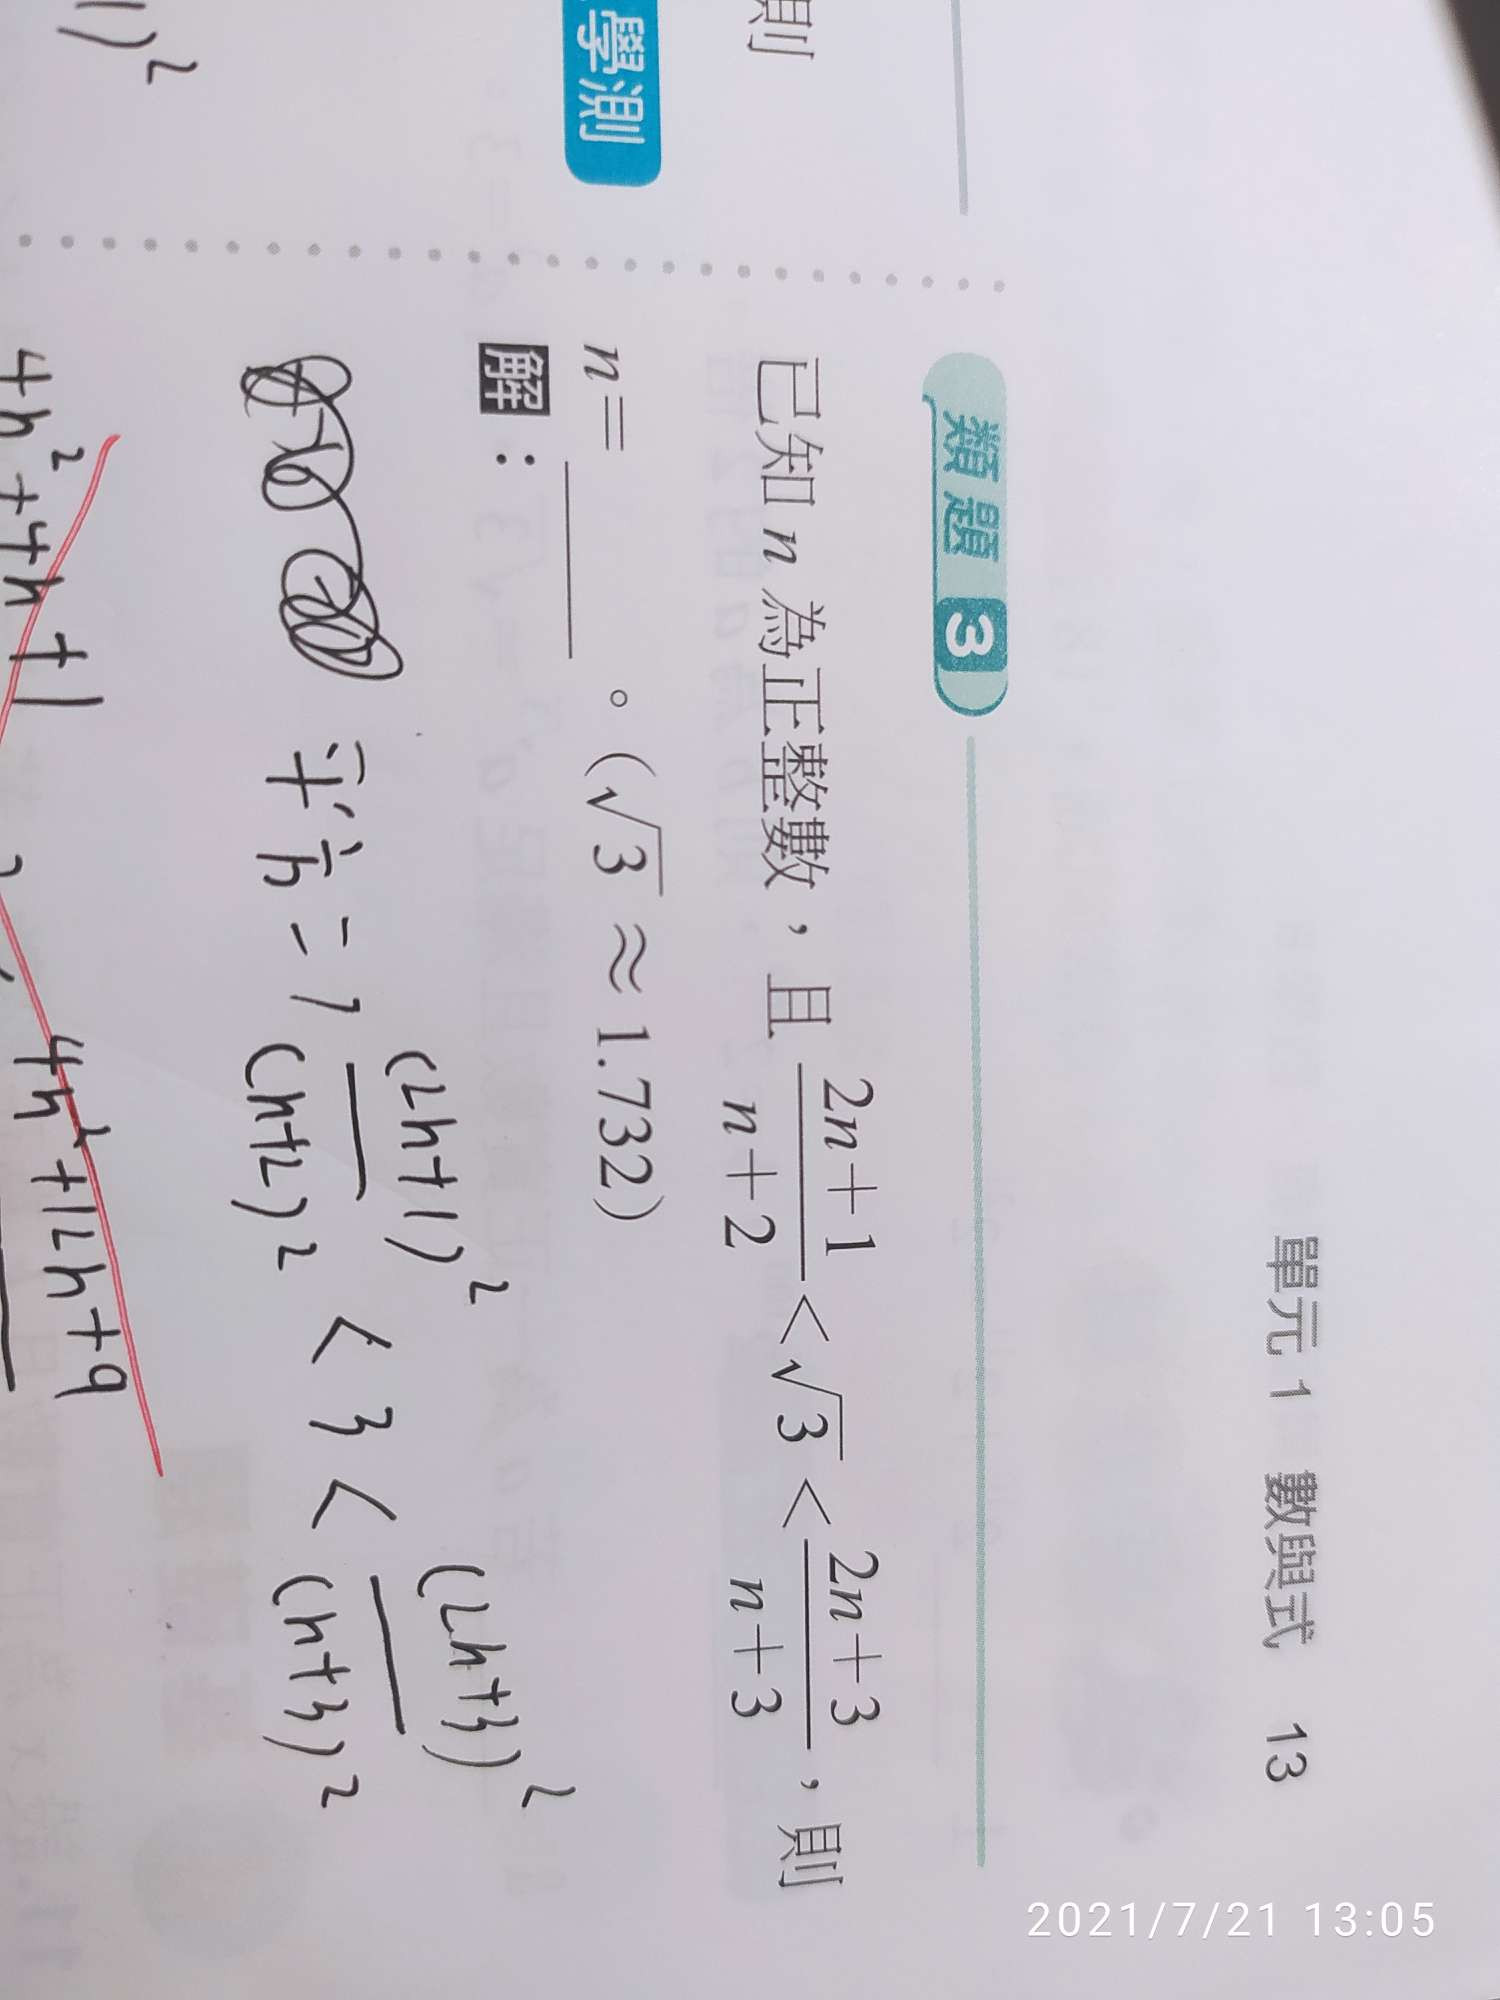 單元 1 數與式 13
則
學測
類題 3
已知 n 為正整數，且 \frac{2n+1}{n+2} < \sqrt{3} < \frac{2n+3}{n+3}，則
n=____。(\sqrt{3} ≈ 1.732)
解：
平方=> \frac{(2n+1)^2}{(n+2)^2} < 3 < \frac{(2n+3)^2}{(n+3)^2}
1)^2
4n^2+4n+1
4n^2+12n+9
2021/7/21 13:05